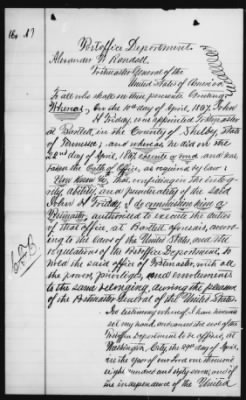 Postoffice Department
Alexander W. Randall,
Postmaster General of the
United States of America.
To all who shall see these presents, Greeting:
Whereas, On the 10th day of April, 1867, John
H. Friday, was appointed Postmaster
at Bartlett, in the County of Shelby, State
of Tennessee; and whereas he did on the
day of April, 1867, execute a bond, and has
taken the Oath of Office, as required by law:
Now know ye, that confiding in the integ-
rity, ability, and punctuality of the said
John H. Friday, I do commission him a
Postmaster, authorised to execute the duties
of that office, at Bartlett aforesaid, accor-
ding to the laws of the United States, and the
regulations of the Postoffice Department; to
hold the said office of Postmaster, with all
the powers, privileges, and emoluments
to the same belonging, during the pleasure
of the Postmaster General of the United States.
In testimony whereof, I have hereunto
set my hand, and caused the seal of the
Postoffice Department to be affixed, at
Washington City, the day of April,
in the year of our Lord one thousand
eight hundred and sixty seven, and of
the independence of the United